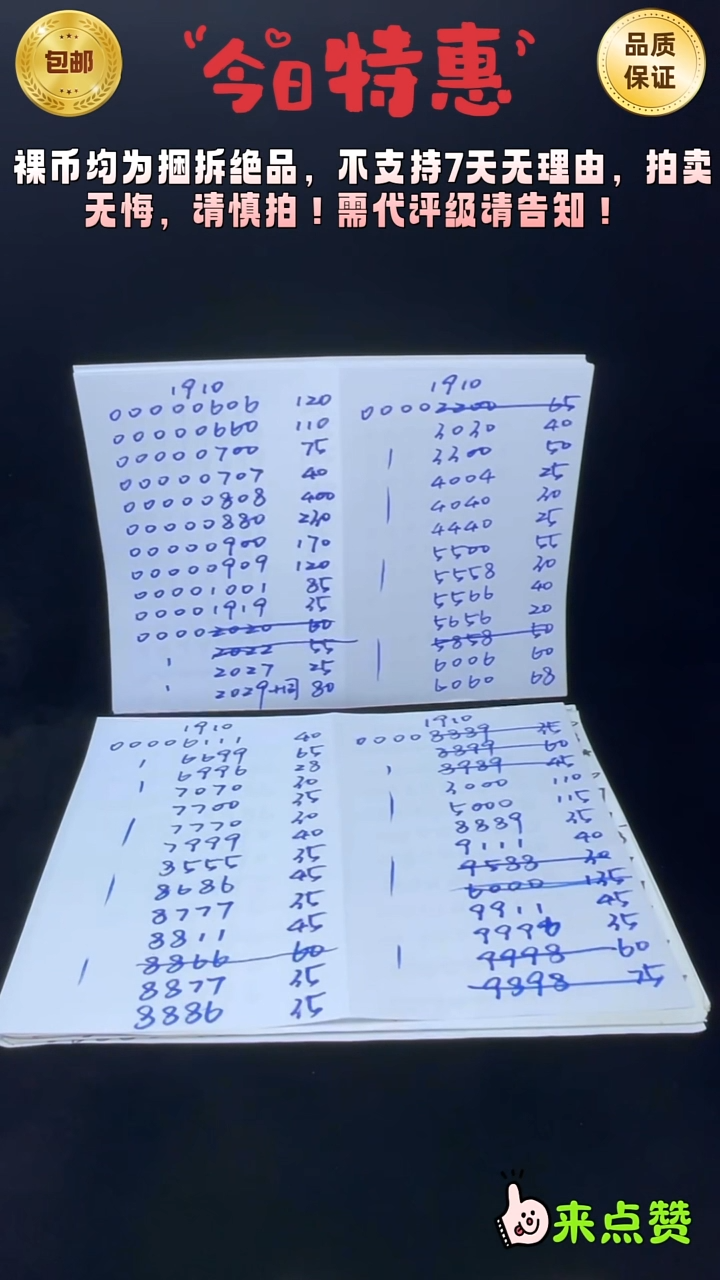 包邮
今日特惠
品质
保证
裸币均为捆拆绝品，不支持7天无理由，拍卖
无悔，请慎拍！需代评级请告知！
1910
00000606 120
00000660 110
00000700 75
00000707 40
00000808 400
00000880 230
00000900 170
00000909 120
00001001 85
00001919 35
00002020 60
2022 55
2027 25
2029 80
1910
00002200 65
3030 40
3300 50
4004 25
4040 30
4440 25
5500 55
5558 30
5566 40
5656 20
5858 50
6006 60
6060 68
1910
00006111 40
6699 65
6996 28
7070 30
7700 35
7770 30
7999 40
8555 35
8686 45
8777 35
8811 45
8866 60
8877 35
8886 35
1910
00008889 35
8899 60
8989 45
3000 110
5000 115
8889 35
9111 40
9588 30
6000 135
9911 45
9996 35
9998 60
9898 75
来点赞